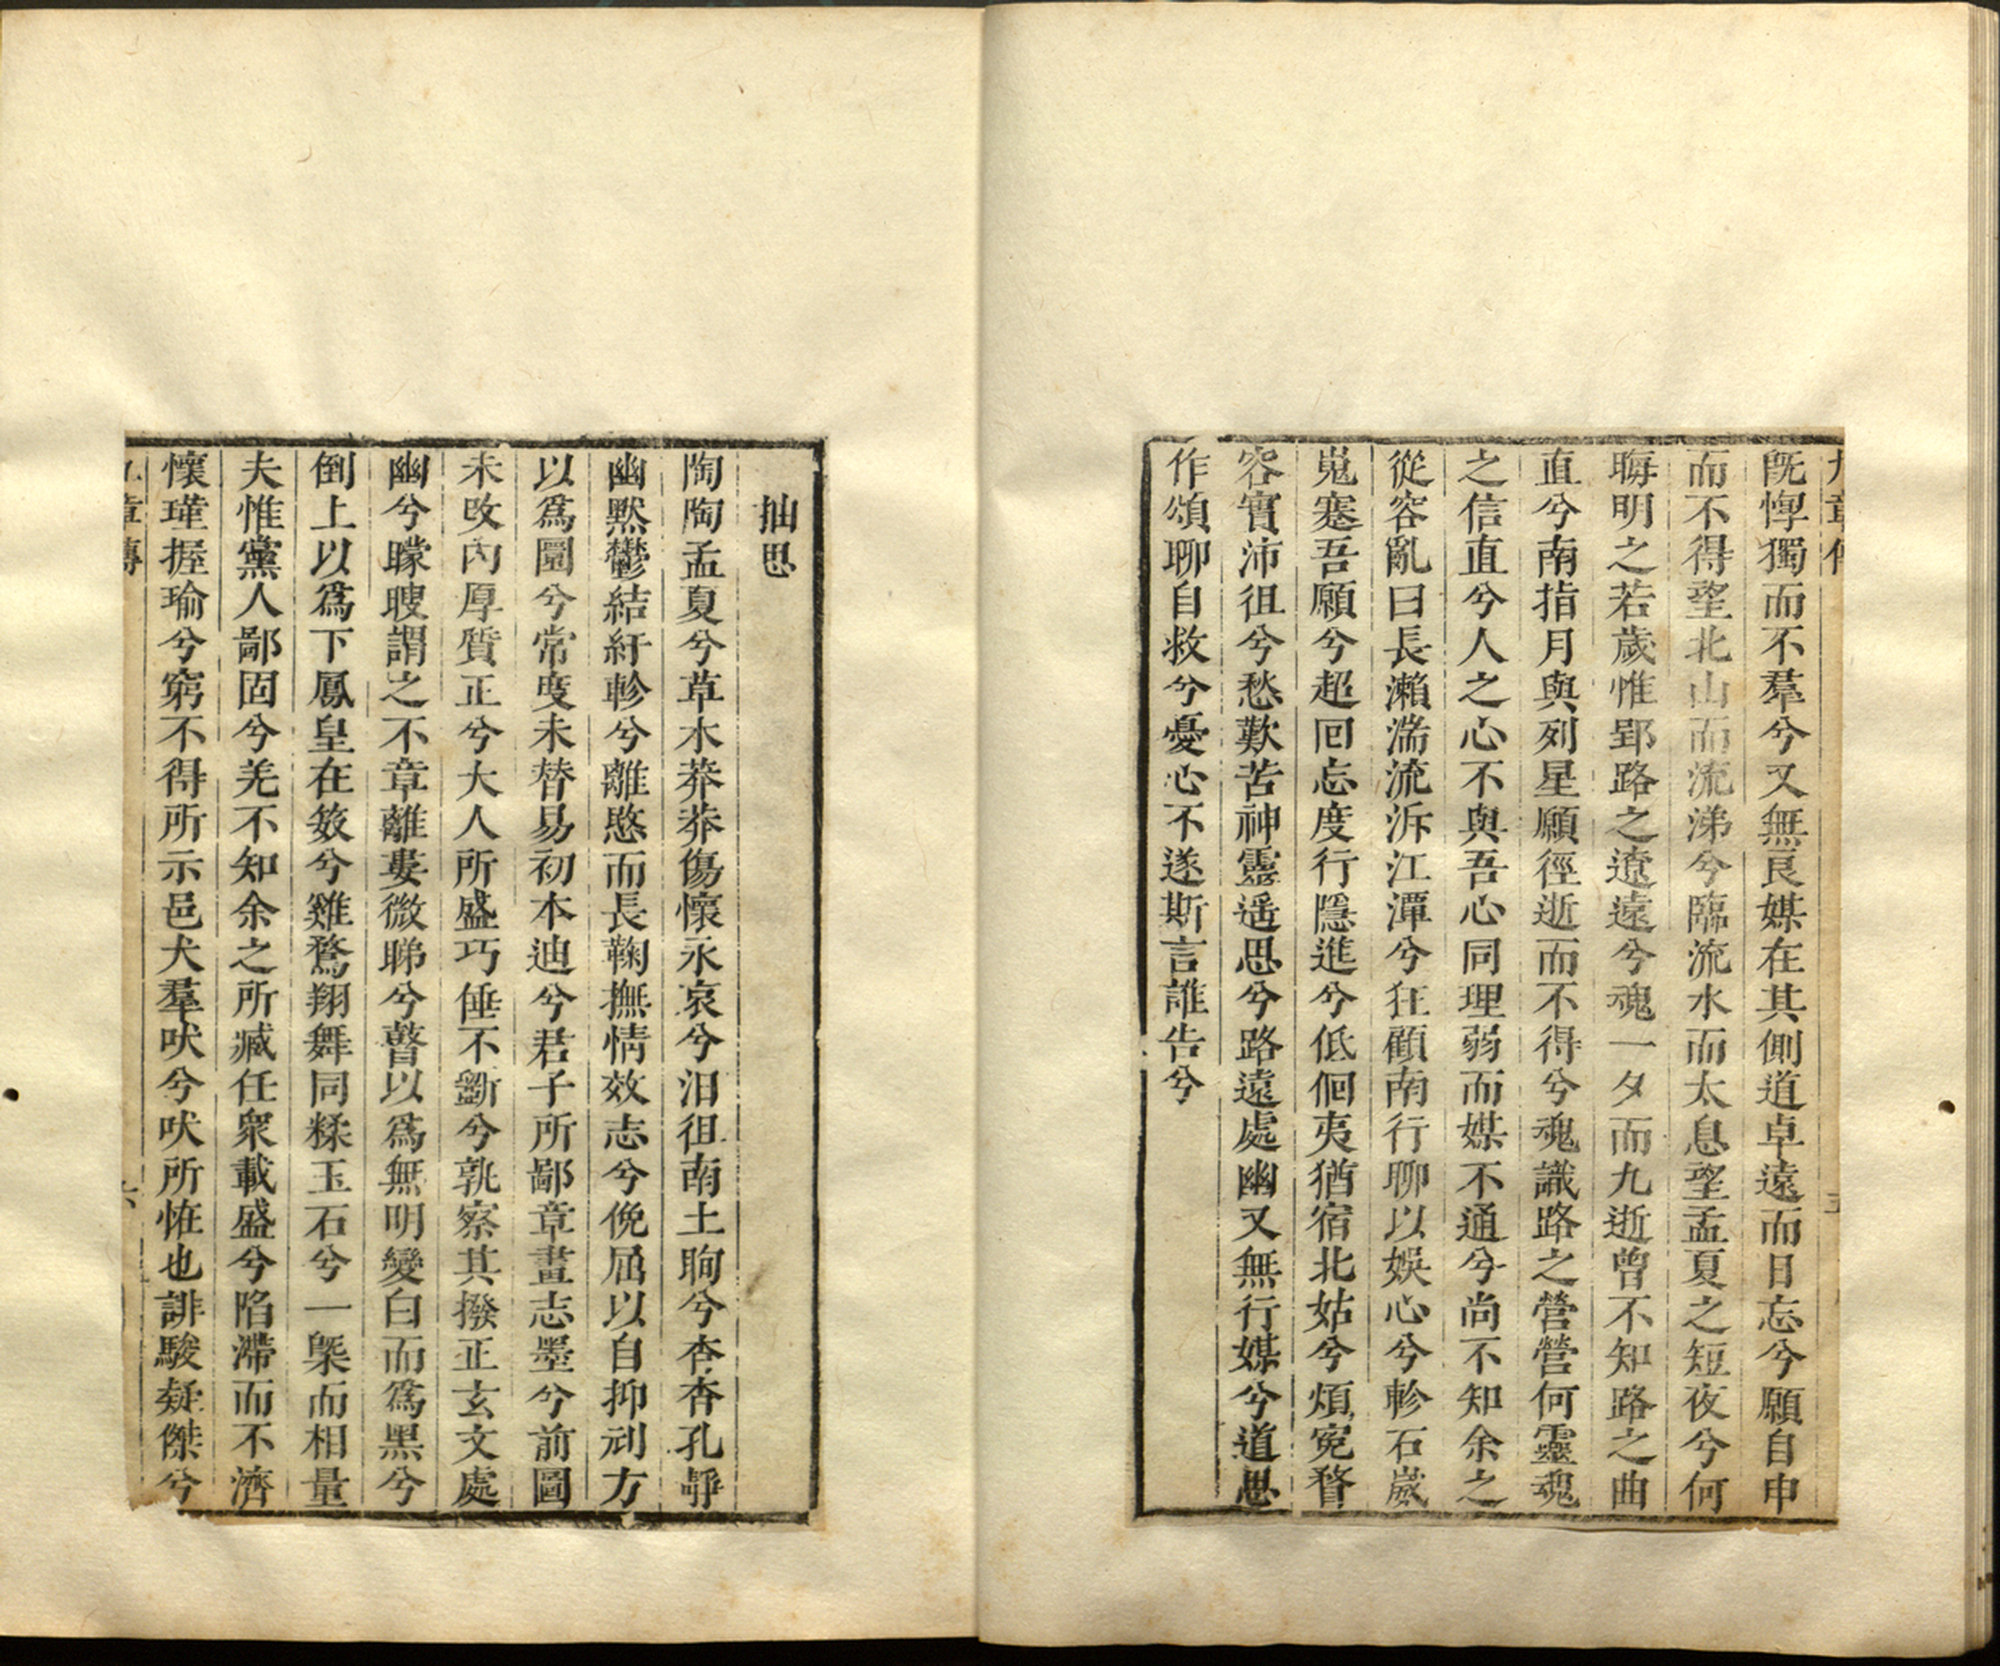 九章傳
既惸獨而不羣兮又無良媒在其側道卓遠而日忘兮願自申
而不得望北山而流涕兮臨流水而太息望孟夏之短夜兮何
晦明之若歲惟郢路之遼遠兮魂一夕而九逝曾不知路之曲
直兮南指月與列星願徑逝而不得兮魂識路之營營何靈魂
之信直兮人之心不與吾心同理弱而媒不通兮尚不知余之
從容亂曰長瀨湍流泝江潭兮狂顧南行聊以娛心兮軫石崴
嵬蹇吾願兮超回忘度行隱進兮低佪夷猶宿北姑兮煩冤瞀
容實沛徂兮愁歎苦神靈遥思兮路遠處幽又無行媒兮道思
作頌聊自救兮憂心不遂斯言誰告兮
抽思
陶陶孟夏兮草木莽莽傷懷永哀兮汨徂南土眴兮杳杳孔靜
幽默鬱結紆軫兮離愍而長鞠撫情效志兮俛屈以自抑刓方
以爲圜兮常度未替易初本迪兮君子所鄙章畫志墨兮前圖
未改內厚質正兮大人所盛巧倕不斵兮孰察其撥正玄文處
幽兮矇瞍謂之不章離婁微睇兮瞽以爲無明變白而爲黑兮
倒上以爲下鳳皇在笯兮雞鶩翔舞同糅玉石兮一槩而相量
夫惟黨人鄙固兮羌不知余之所臧任衆載盛兮陷滯而不濟
懷瑾握瑜兮窮不得所示邑犬羣吠兮吠所怪也誹駿疑傑兮
九章傳 六